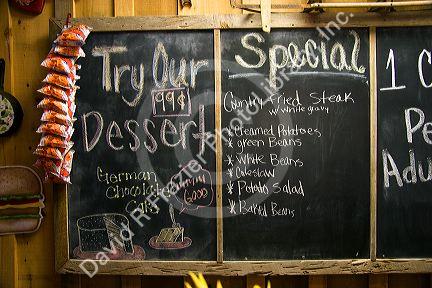 Try Our
99¢
Dessert
German
Chocolate
Cake
GOOD
Special
Country Fried Steak
w/ white gravy
* Creamed Potatoes
* green Beans
* White Beans
* Coleslaw
* Potato Salad
* Baked Beans
1 C
Pe
Adu